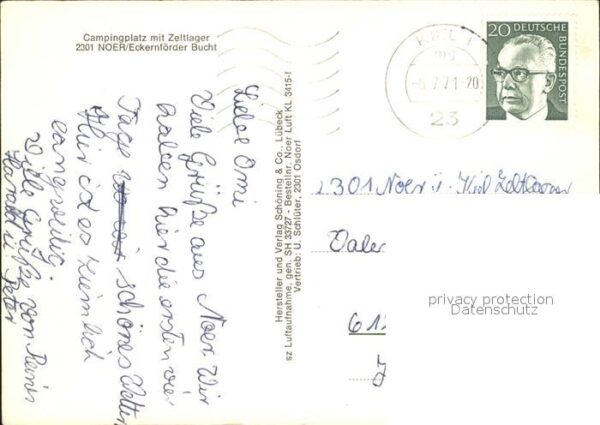 Campingplatz mit Zeltlager
2301 NOER/Eckernförder Bucht
Liebe Omi
Viele Grüße aus Noer. Wir
haben hier die ersten vier
Tage schönes Wetter
Hier ist es ziemlich
langweilig.
Viele Grüße von Reiner
Harald u. Peter
Hersteller und Verlag Schöning & Co., Lübeck
sz Luftaufnahme, gen. SH 33727 - Bestellnr. Noer Luft KL 3415-f
Vertrieb: U. Schlüter, 2301 Osdorf
KIEL 1
mg
-5.7.71-20
23
20 DEUTSCHE
BUNDESPOST
2301 Noer ü. Kiel Zeltlager
privacy protection
Datenschutz